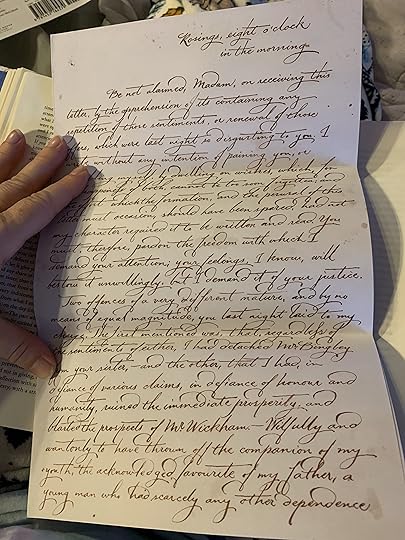 Rosings, eight o'clock
in the morning
Be not alarmed, Madam, on receiving this
letter, by the apprehension of its containing any
repetition of those sentiments, or renewal of those
which were last night so disgusting to you. I
without any intention of paining you, or
myself, by dwelling on wishes, which, for
of both, cannot be too soon
effort which the formation, and the perusal of this
letter must occasion, should have been spared, had not
my character required it to be written and read. You
must, therefore, pardon the freedom with which I
demand your attention; your feelings, I know, will
bestow it unwillingly, but I demand it of your justice.
Two offences of a very different nature, and by no
means of equal magnitude, you last night laid to my
charge. The first mentioned was, that, regardless of
the sentiments of either, I had detached Mr Bingley
from your sister, - and the other, that I had, in
defiance of various claims, in defiance of honour and
humanity, ruined the immediate prosperity, and
blasted the prospects of Mr Wickham. - Wilfully and
wantonly to have thrown off the companion of my
youth, the acknowledged favourite of my father, a
young man who had scarcely any other dependence